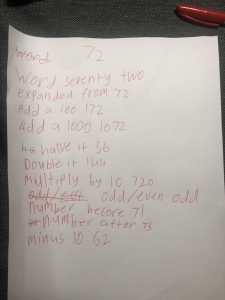 word 72
Word seventy two
expanded from 72
Add a 100 172
Add a 1000 1072
halve it 36
Double it 144
multiply by 10 720
odd/even odd
number before 71
number after 73
minus 10 62